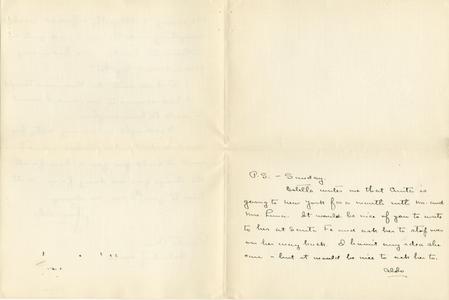 P.S. – Sunday.
writes me that Anita is
going to New York for a month with Mr. and
Mrs. Luna. It would be nice of you to write
to her at Santa Fe and ask her to stop over
on her way back. I haven't any idea she
– but it would be nice to ask her to.
Aldo